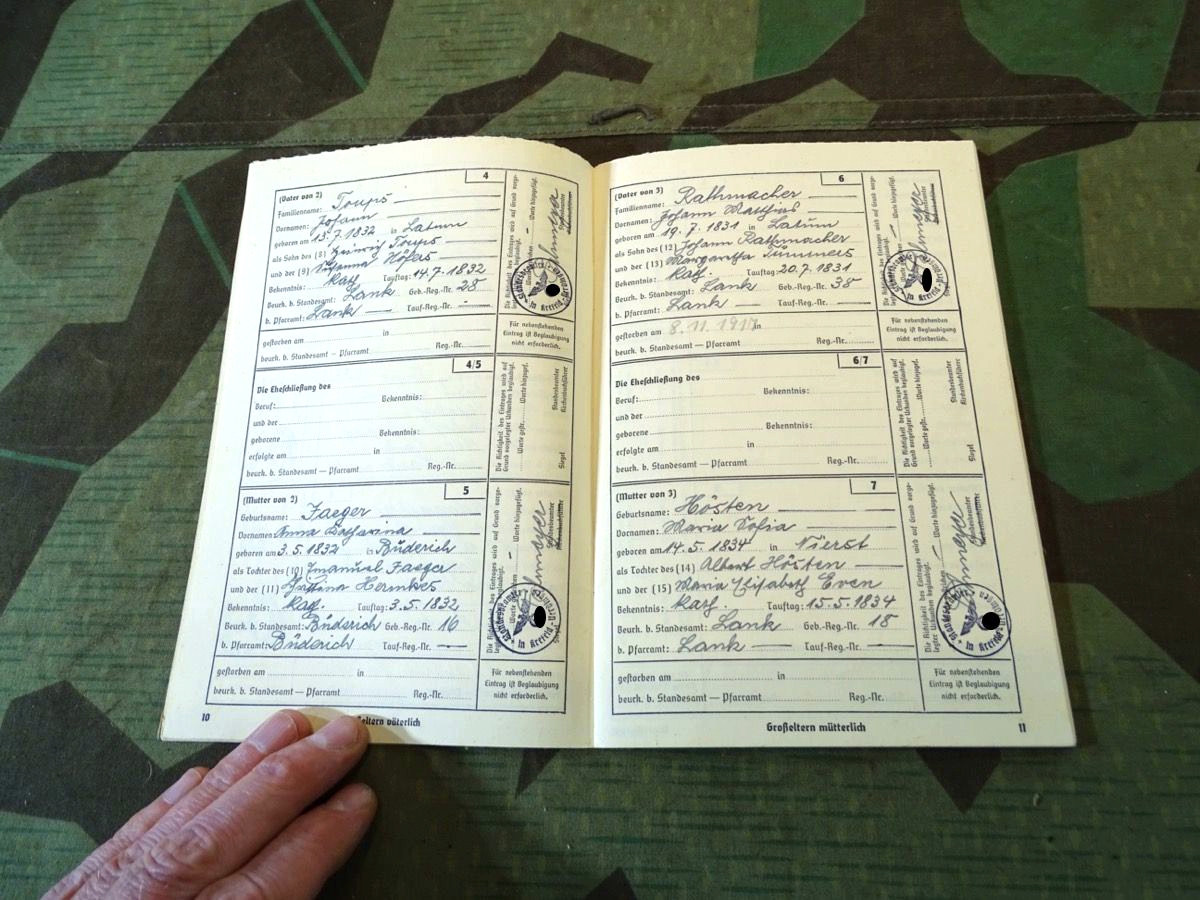 4
(Vater von 2)
Familienname: Toups
Vornamen: Johann
geboren am 13.7.1832 in Latum
als Sohn des (8) Heinrich Toups
und der (9) Susanna Höfers
Bekenntnis: Kath. Tauftag: 14.7.1832
Beurk. b. Standesamt: Lank Geb.-Reg.-Nr. 28
b. Pfarramt: Lank — Tauf-Reg.-Nr. —
gestorben am in
beurk. b. Standesamt — Pfarramt Reg.-Nr.
Für nebenstehenden
Eintrag ist Beglaubigung
nicht erforderlich.
4/5
Die Eheschließung des
Beruf: Bekenntnis:
und der
geborene Bekenntnis:
erfolgte am in
beurk. b. Standesamt — Pfarramt Reg.-Nr.
Die Richtigkeit des Eintrages wird auf
Grund vorgelegter Urkunden beglaubigt.
Worte gestr. Worte hinzugef.
Standesbeamter
Kirchenbuchführer
Siegel
5
(Mutter von 2)
Geburtsname: Jaeger
Vornamen: Anna Catharina
geboren am 3.5.1832 in Büderich
als Tochter des (10) Imanuel Jaeger
und der (11) Hermkes
Bekenntnis: Kath. Tauftag: 3.5.1832
Beurk. b. Standesamt: Büderich Geb.-Reg.-Nr. 16
b. Pfarramt: Büderich Tauf-Reg.-Nr. —
gestorben am in
beurk. b. Standesamt — Pfarramt Reg.-Nr.
Für nebenstehenden
Eintrag ist Beglaubigung
nicht erforderlich.
10
eltern väterlich
6
(Vater von 3)
Familienname: Rathmacher
Vornamen: Johann Matthias
geboren am 19.7.1831 in Latum
als Sohn des (12) Johann Rathmacher
und der (13) Margaretha
Bekenntnis: Kath. Tauftag: 20.7.1831
Beurk. b. Standesamt: Lank Geb.-Reg.-Nr. 38
b. Pfarramt: Lank — Tauf-Reg.-Nr.
gestorben am 8.11.1917 in
beurk. b. Standesamt — Pfarramt Reg.-Nr.
Für nebenstehenden
Eintrag ist Beglaubigung
nicht erforderlich.
6/7
Die Eheschließung des
Beruf: Bekenntnis:
und der
geborene Bekenntnis:
erfolgte am in
beurk. b. Standesamt — Pfarramt Reg.-Nr.
Die Richtigkeit des Eintrages wird auf
Grund vorgelegter Urkunden beglaubigt.
Worte gestr. Worte hinzugef.
Standesbeamter
Kirchenbuchführer
Siegel
7
(Mutter von 3)
Geburtsname: Hösten
Vornamen: Maria Sofia
geboren am 14.5.1834 in Nierst
als Tochter des (14) Albert Hösten
und der (15) Maria Elisabeth Even
Bekenntnis: Kath. Tauftag: 15.5.1834
Beurk. b. Standesamt: Lank Geb.-Reg.-Nr. 18
b. Pfarramt: Lank — Tauf-Reg.-Nr. —
gestorben am in
beurk. b. Standesamt — Pfarramt Reg.-Nr.
Für nebenstehenden
Eintrag ist Beglaubigung
nicht erforderlich.
Großeltern mütterlich
11